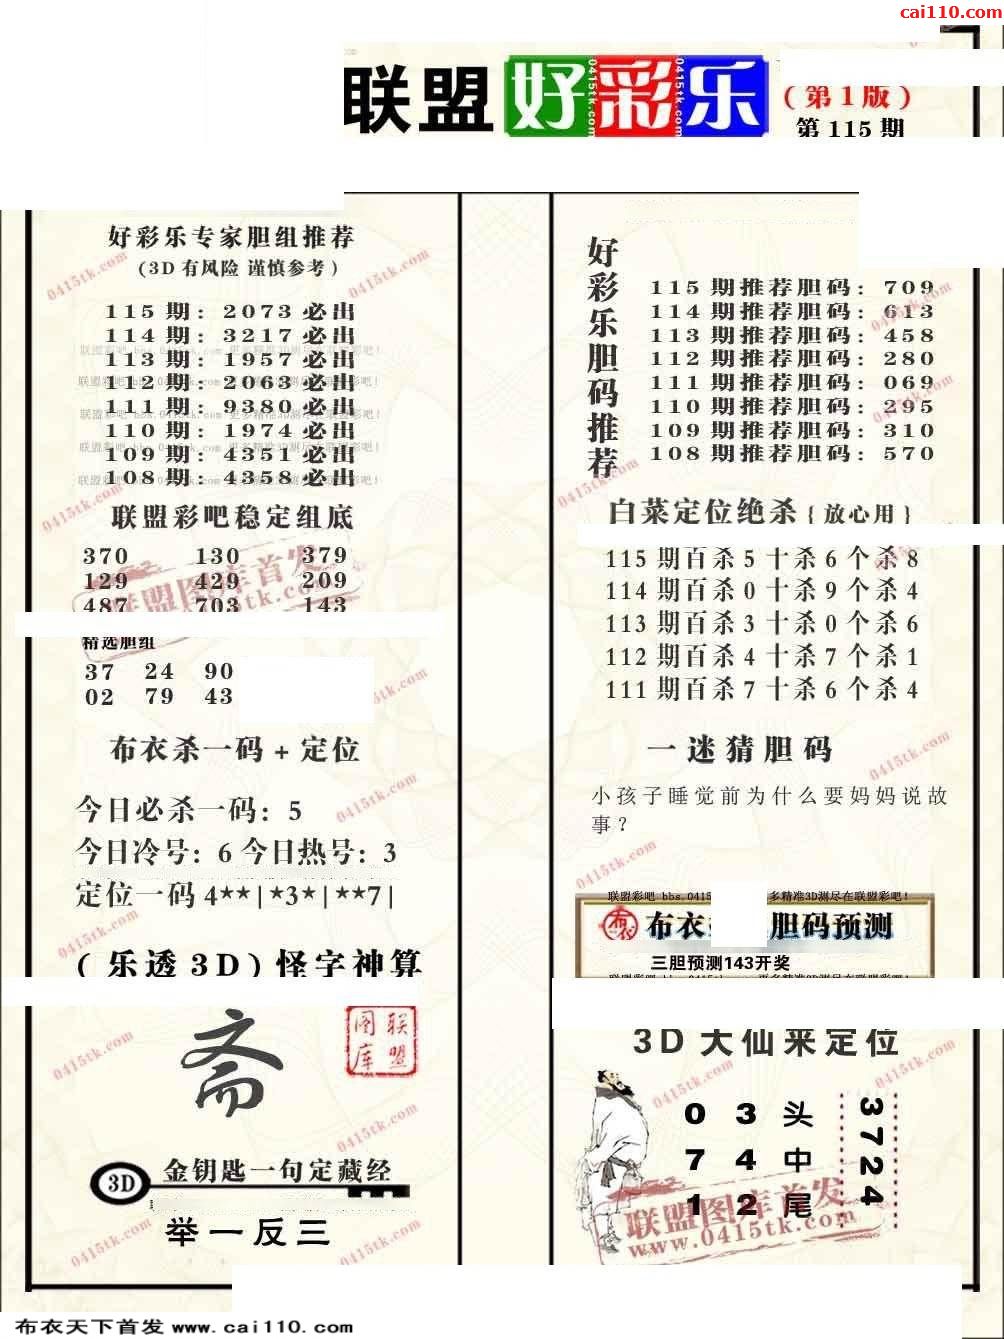 cai110.com
联盟 好彩乐
(第1版)
第115期
好彩乐专家胆组推荐
(3D有风险 谨慎参考)
115期: 2073必出
114期: 3217必出
113期: 1957必出
112期: 2063必出
111期: 9380必出
110期: 1974必出
109期: 4351必出
108期: 4358必出
联盟彩吧稳定组底
370 130 379
129 429 209
487 703 143
精选胆组
37 24 90
02 79 43
布衣杀一码+定位
今日必杀一码: 5
今日冷号: 6 今日热号: 3
定位一码4**|*3*|**7|
(乐透3D)怪字神算
斋
联盟图库
3D 金钥匙一句定藏经
举一反三
好彩乐胆码推荐
115期推荐胆码: 709
114期推荐胆码: 613
113期推荐胆码: 458
112期推荐胆码: 280
111期推荐胆码: 069
110期推荐胆码: 295
109期推荐胆码: 310
108期推荐胆码: 570
白菜定位绝杀{放心用}
115期百杀5十杀6个杀8
114期百杀0十杀9个杀4
113期百杀3十杀0个杀6
112期百杀4十杀7个杀1
111期百杀7十杀6个杀4
一迷猜胆码
小孩子睡觉前为什么要妈妈说故
事?
布衣 胆码预测
三胆预测143开奖
3D大仙来定位
0 3 头
7 4 中
1 2 尾
3724
联盟图库首发
www.0415tk.com
布衣天下首发 www.cai110.com